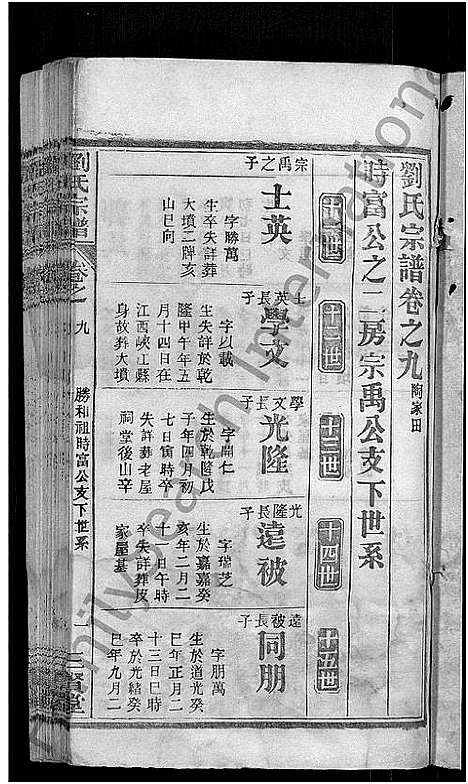 劉氏宗譜卷之九 陶家田
時富公之二房宗禹公支下世系
十一世
十二世
十三世
十四世
十五世
宗禹之子
士英
字勝萬
生卒失詳葬
大墳二牌亥
山巳向
士英長子
學文
字以載
生失詳於乾
隆甲午年五
月十四日在
江西峽江縣
身故葬大墳
學文長子
光隆
字開仁
生於乾隆戊
子年四月初
七日寅時卒
失詳葬老屋
祠堂後山辛
光隆長子
遠被
字瑞芝
生於嘉慶癸
亥年二月二
十 日午時
卒失詳葬皮
家屋基
遠被長子
同朋
字朋萬
生於道光癸
巳年正月二
十三日巳時
卒於光緒癸
巳年九月二
劉氏宗譜
卷之九
勝和祖時富公支下世系
一
三賢堂